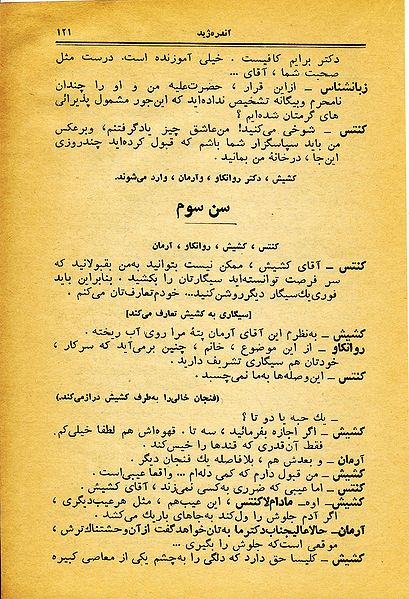 آندره‌ژید
۱۲۱
دکتر برایم کافیست . خیلی آموزنده است. درست مثل
صحبت شما ، آقای ...
زبانشناس – از این قرار ، حضرت‌علیه من و او را چندان
نامحرم و بیگانه تشخیص نداده‌اید که این‌جور مشمول پذیرائی
های گرمتان شده‌ایم ؟
کنتس – شوخی می‌کنید! من عاشق چیز یادگرفتنم، وبرعکس
من باید سپاسگزار شما باشم که قبول کرده‌اید چندروزی
این‌جا ، درخانهٔ من بمانید .
کشیش ، دکتر روانکاو ، وآرمان ، وارد می‌شوند.
سن سوم
کنتس ، کشیش ، روانکاو ، آرمان
کنتس – آقای کشیش ، ممکن نیست بتوانید به‌من بقبولانید که
سر فرصت توانسته‌اید سیگارتان را بکشید . بنابراین باید
فوری یك سیگار دیگر روشن کنید... خودم تعارف‌تان می‌کنم .
[سیگاری به کشیش تعارف می‌کند]
کشیش – به‌نظرم این آقای آرمان پتهٔ مرا روی آب ریخته .
روانکاو – از این موضوع ، خانم ، چنین برمی‌آید که سرکار ،
خودتان هم سیگاری تشریف دارید .
کنتس – این وصله‌ها به‌ما نمی‌چسبد .
(فنجان خالی را به‌طرف کشیش دراز می‌کند.)
– یك حبه یا دو تا ؟
کشیش – اگر اجازه بفرمائید ، سه تا . قهوه‌اش هم لطفا خیلی‌کم.
فقط آن‌قدری که قندها را خیس‌کند .
آرمان – و بعدش هم ، بلافاصله یك فنجان دیگر .
کشیش – من قبول دارم که کمی دله‌ام ... واقعاً عیبی‌است .
کنتس – اما عیبی که ضرری به‌کسی نمی‌زند ، آقای کشیش .
کشیش – اوه... مادام لاکنتس ، این عیب‌هم ، مثل هرعیب‌دیگری ،
اگر آدم جلوش را ول‌کند به‌جاهای باریك می‌کشد .
آرمان – حالا عالیجناب دکتر ما به‌تان خواهد گفت از آن وحشتناك‌ترش ،
موقعی است‌که جلوش را بگیری ...
کشیش – کلیسا حق دارد که دلگی را به‌چشم یکی از معاصی کبیره